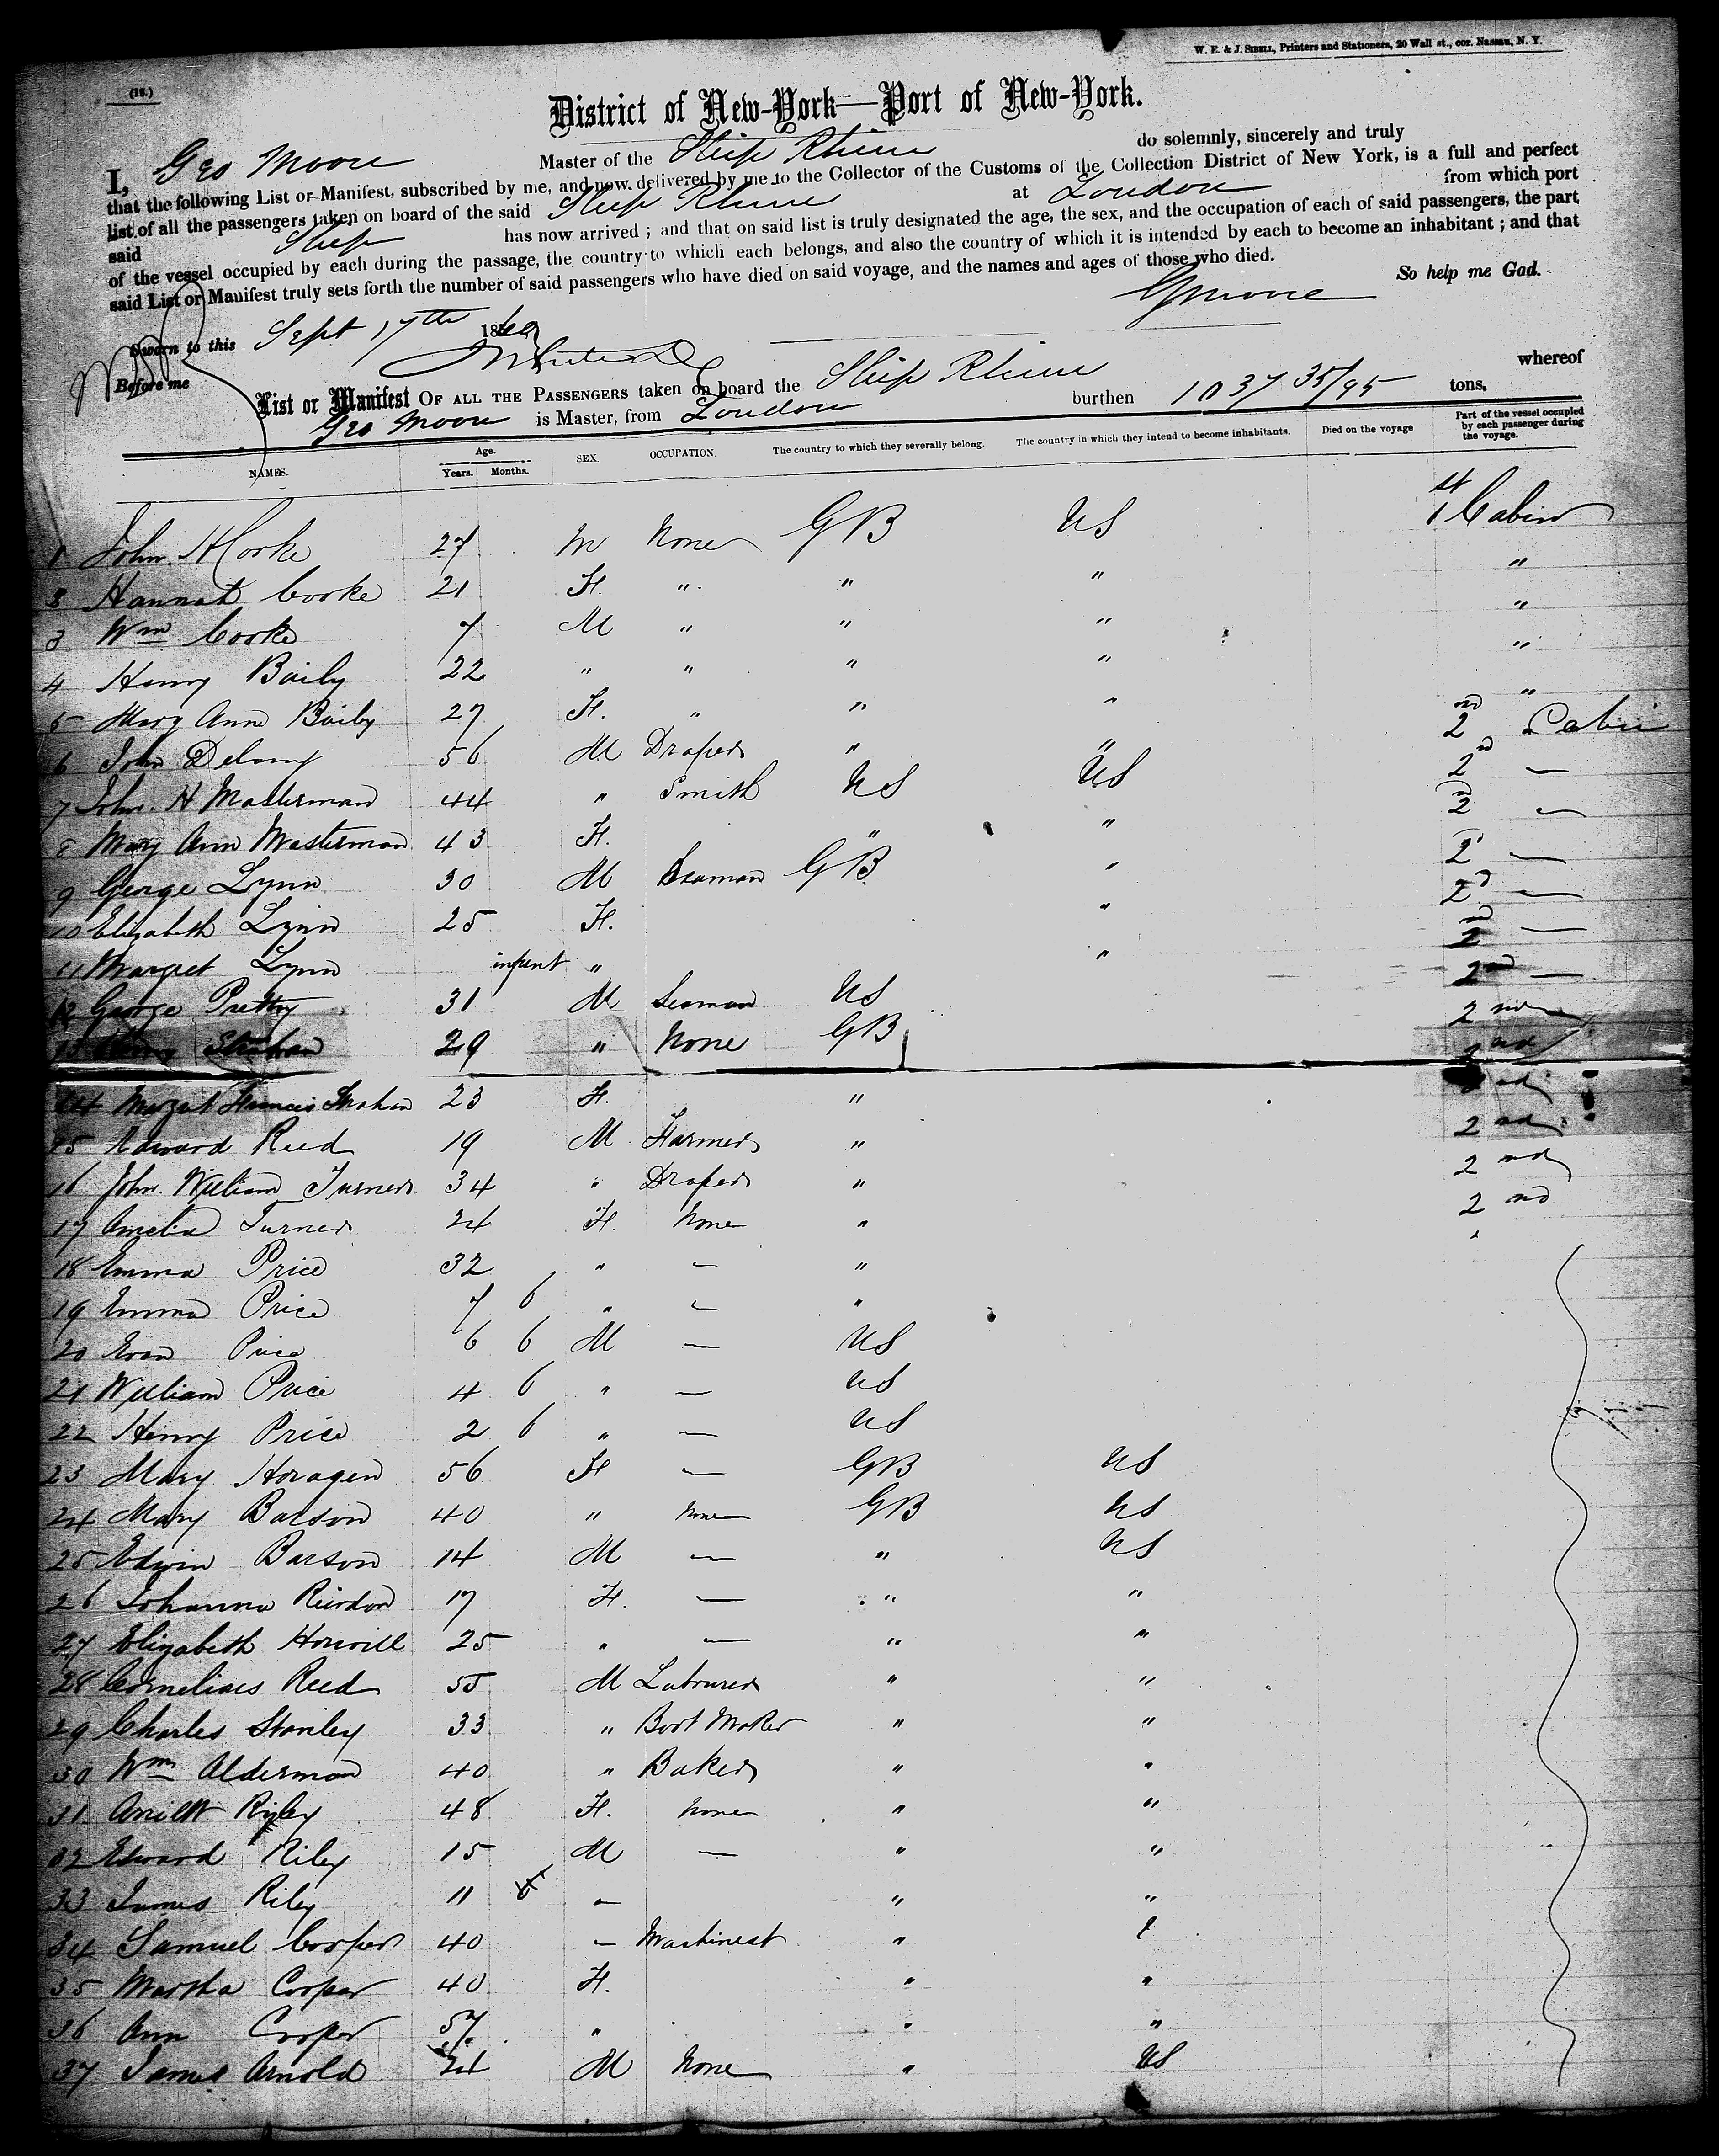 W. E. & J. SIBELL, Printers and Stationers, 20 Wall st., cor. Nassau, N. Y.
(18.)
District of New-York—Port of New-York.
I, Geo Moore Master of the Ship Rhine do solemnly, sincerely and truly
that the following List or Manifest, subscribed by me, and now delivered by me to the Collector of the Customs of the Collection District of New York, is a full and perfect
list of all the passengers taken on board of the said Ship Rhine at London from which port
said Ship has now arrived ; and that on said list is truly designated the age, the sex, and the occupation of each of said passengers, the part
of the vessel occupied by each during the passage, the country to which each belongs, and also the country of which it is intended by each to become an inhabitant ; and that
said List or Manifest truly sets forth the number of said passengers who have died on said voyage, and the names and ages of those who died.
So help me God.
GMoore
Sworn to this Sept 17th 1860
Before me
List or Manifest OF ALL THE PASSENGERS taken on board the Ship Rhine whereof
Geo Moore is Master, from London burthen 1037 35/95 tons.
NAMES. Age. Years. Months. SEX. OCCUPATION. The country to which they severally belong. The country in which they intend to become inhabitants. Died on the voyage Part of the vessel occupied by each passenger during the voyage.
1 John H Cooke 27 M None GB US 1st Cabin
2 Hannah Cooke 21 F. " " " "
3 Wm Cooke 7 M " " " "
4 Henry Baily 22 " " " " "
5 Mary Ann Baily 27 F. " " " "
6 John Delany 56 M Draper " " 2nd Cabin
7 John H Masterman 44 " Smith US US 2nd —
8 Mary Ann Masterman 43 F. " " 2nd —
9 George Lynn 30 M Seaman GB " 2d —
10 Elizabeth Lynn 25 F. " 2d —
11 Margret Lynn infant " " 2nd —
12 George Pretty 31 M Seaman US 2nd —
13 Strahan 29 " None GB 2nd
14 Margret Francis Strahan 23 F. " 2nd
15 Edward Reed 19 M Farmer " 2nd
16 John William Turner 34 " Draper " 2nd
17 Amelia Turner 24 F. None " 2nd
18 Emma Price 32 " — "
19 Emma Price 7 6 " — "
20 Evan Price 6 6 M — US
21 William Price 4 6 " — US
22 Henry Price 2 6 " — US
23 Mary Horagen 56 F — GB US
24 Mary Barson 40 " None GB US
25 Edwin Barson 14 M — " US
26 Johanna Riordon 17 F. — " "
27 Elizabeth Howill 25 " — " "
28 Cornelius Reed 55 M Labourer " "
29 Charles Stanley 33 " Boot Maker " "
30 Wm Alderman 40 " Baker " "
31 Riley 48 F. None " "
32 Edward Riley 15 M — " "
33 James Riley 11 — " "
34 Samuel Cooper 40 — Machinest " "
35 Martha Cooper 40 F. " "
36 Ann Cooper 57 " " "
37 James Arnold 24 M None " US